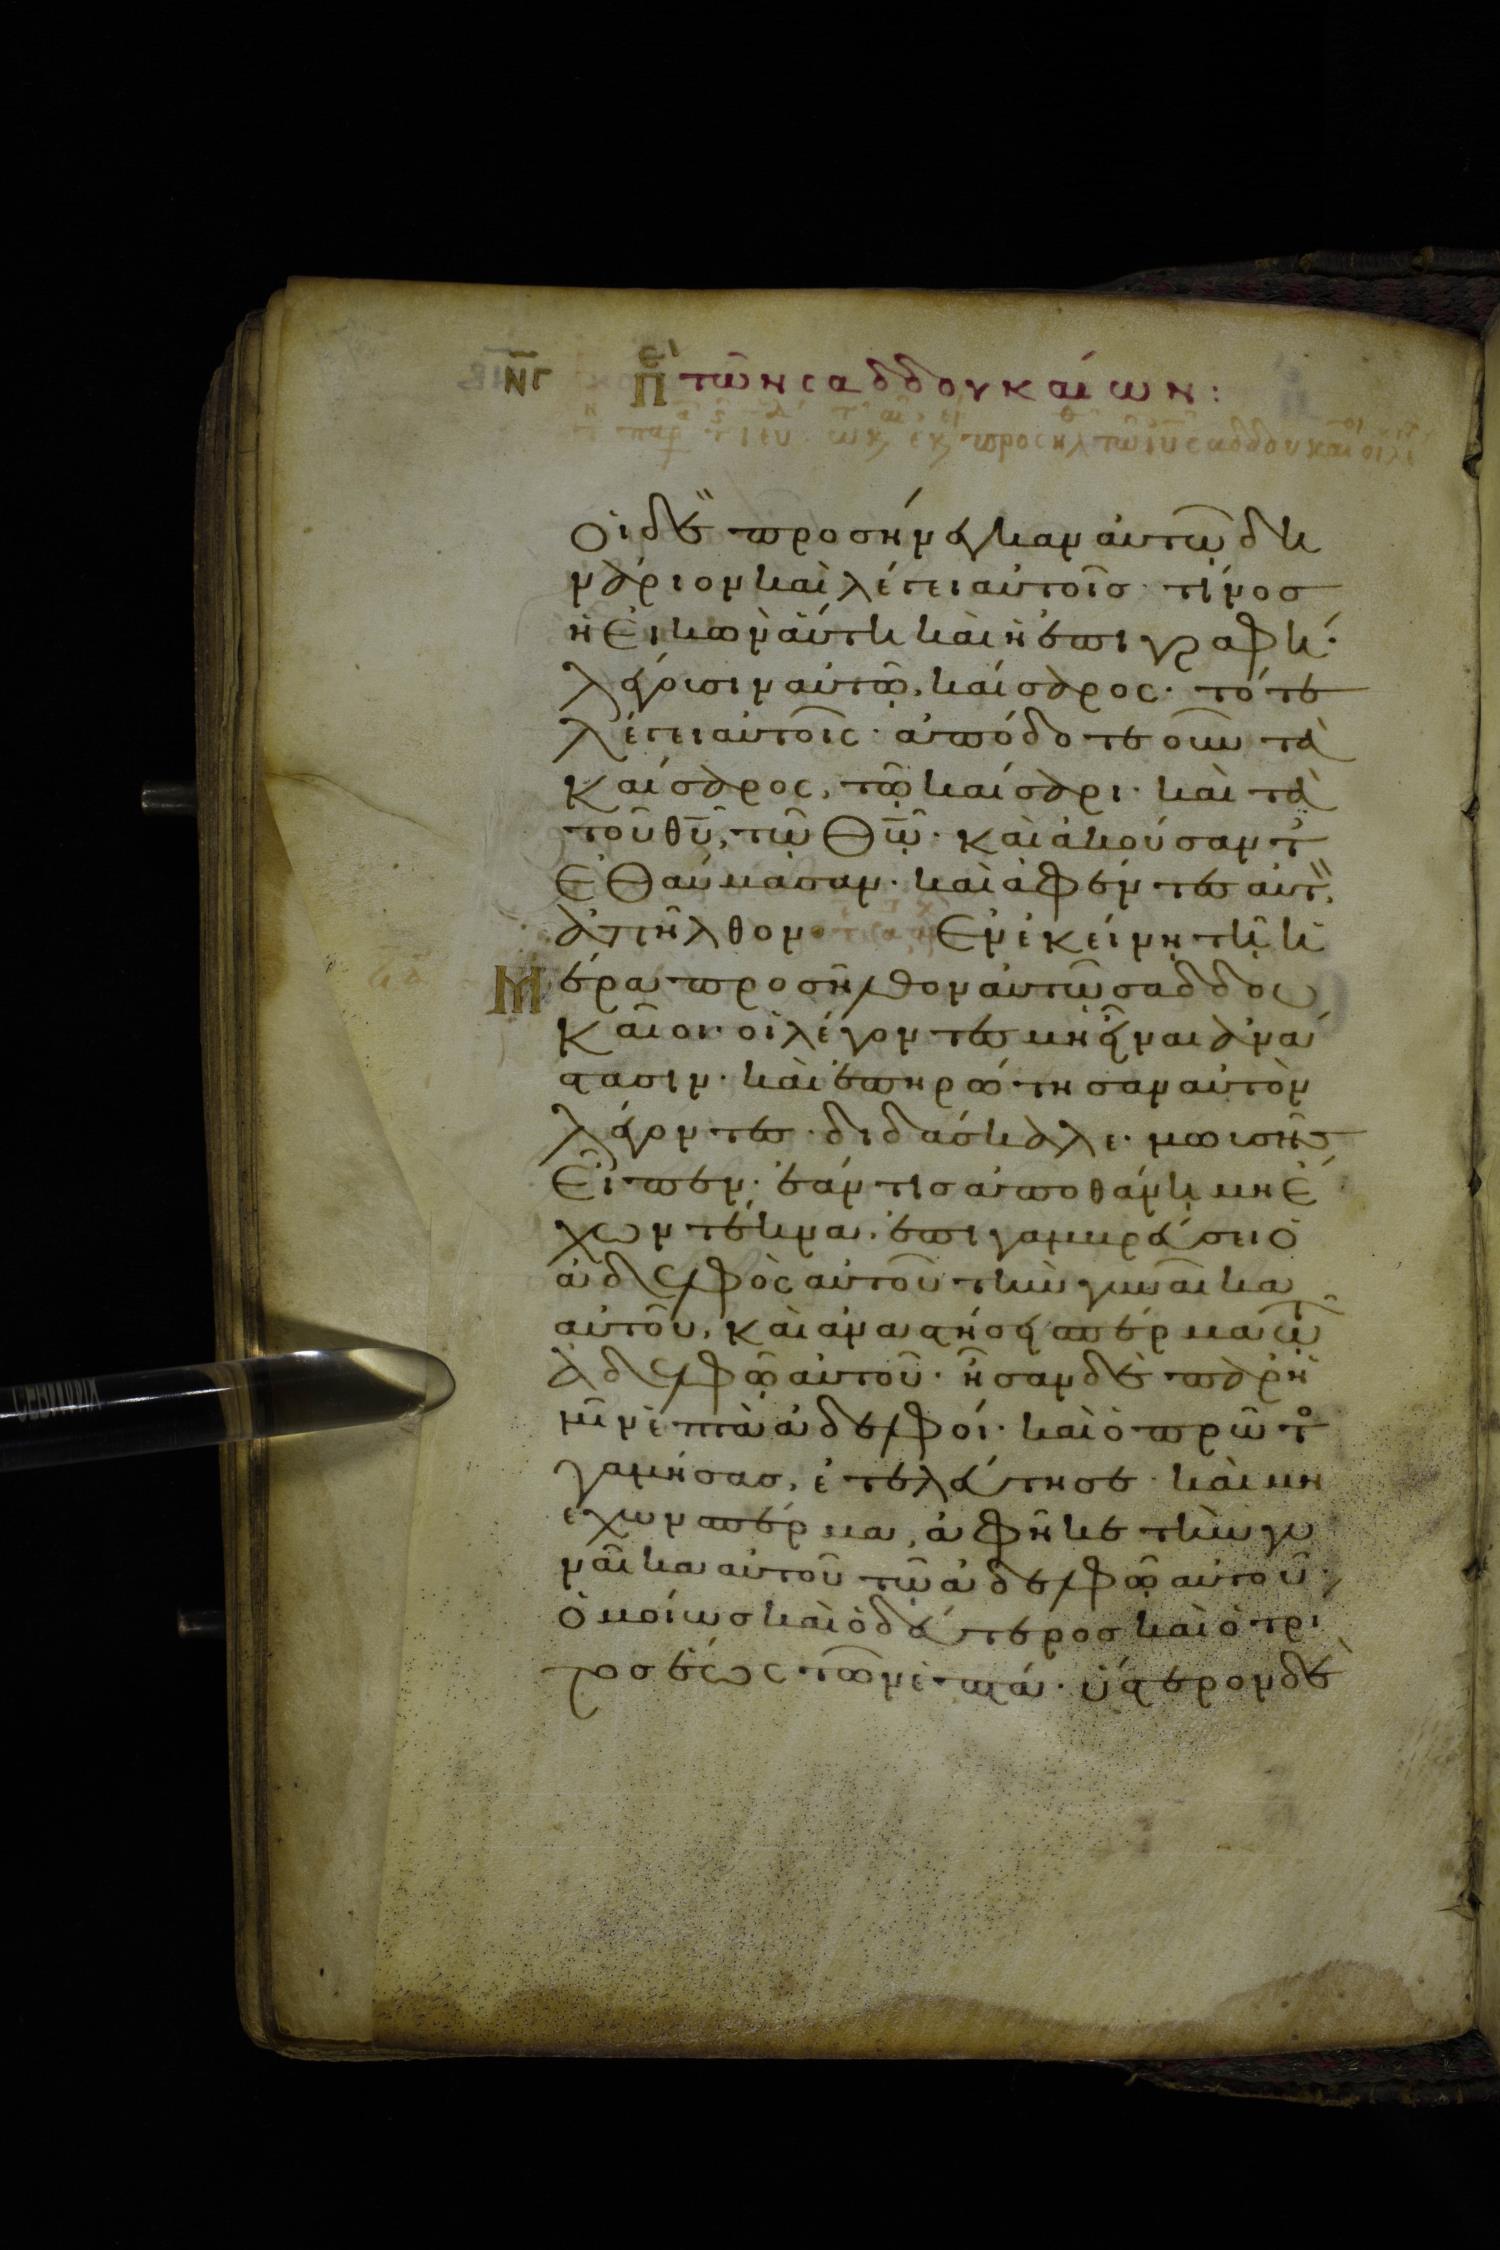 ΝΓ Περὶ τῶν σαδδουκαίων:
οἱ δὲ προσήνεγκαν αὐτῷ δη
νάριον καὶ λέγει αὐτοῖσ· τίνοσ
ἡ εἰκὼν αὕτη καὶ ἡ ἐπιγραφή·
λέγουσιν αὐτῷ, καίσαρος· τότε
λέγει αὐτοῖς· ἀπόδοτε οὖν τὰ
καίσαρος, τῷ καίσαρι· καὶ τὰ
τοῦ θῦ, τῷ θῶ· καὶ ἀκούσαντ
ἐθαύμασαν· καὶ ἀφέντες αὐτ,
ἀπῆλθον· Ἐν ἐκείνη τῆ ἡ
μέρα προσῆλθον αὐτῶ σαδδου
καῖοι· οἱ λέγοντες μὴ εἶναι ἀνά
στασιν· καὶ ἐπηρώτησαν αὐτὸν
λέγοντες· διδάσκαλε· μωισῆς
εἶπεν· ἐάν τισ ἀποθάνη μὴ ἔ
χων τέκνα· ἐπιγαμβρεύσει ὁ
ἀδελφὸς αὐτοῦ τὴν γυναῖκα
αὐτοῦ, καὶ ἀναστήσει σπέρμα τῶ
ἀδελφῷ αὐτοῦ· ἦσαν δὲ παρ ἡ
μῖν ἑπτὰ ἀδελφοί· καὶ ὁ πρῶτο
γαμήσασ, ἐτελεύτησε· καὶ μὴ
ἔχων σπέρμα, ἀφῆκε τὴν γυ
ναῖκα αὐτοῦ τῷ ἀδελφῷ αὐτοῦ·
ὁμοίωσ καὶ ὁ δεύτεροσ καὶ ὁ τρί
τοσ ἕως τῶν ἑπτά· ὕστερον δὲ